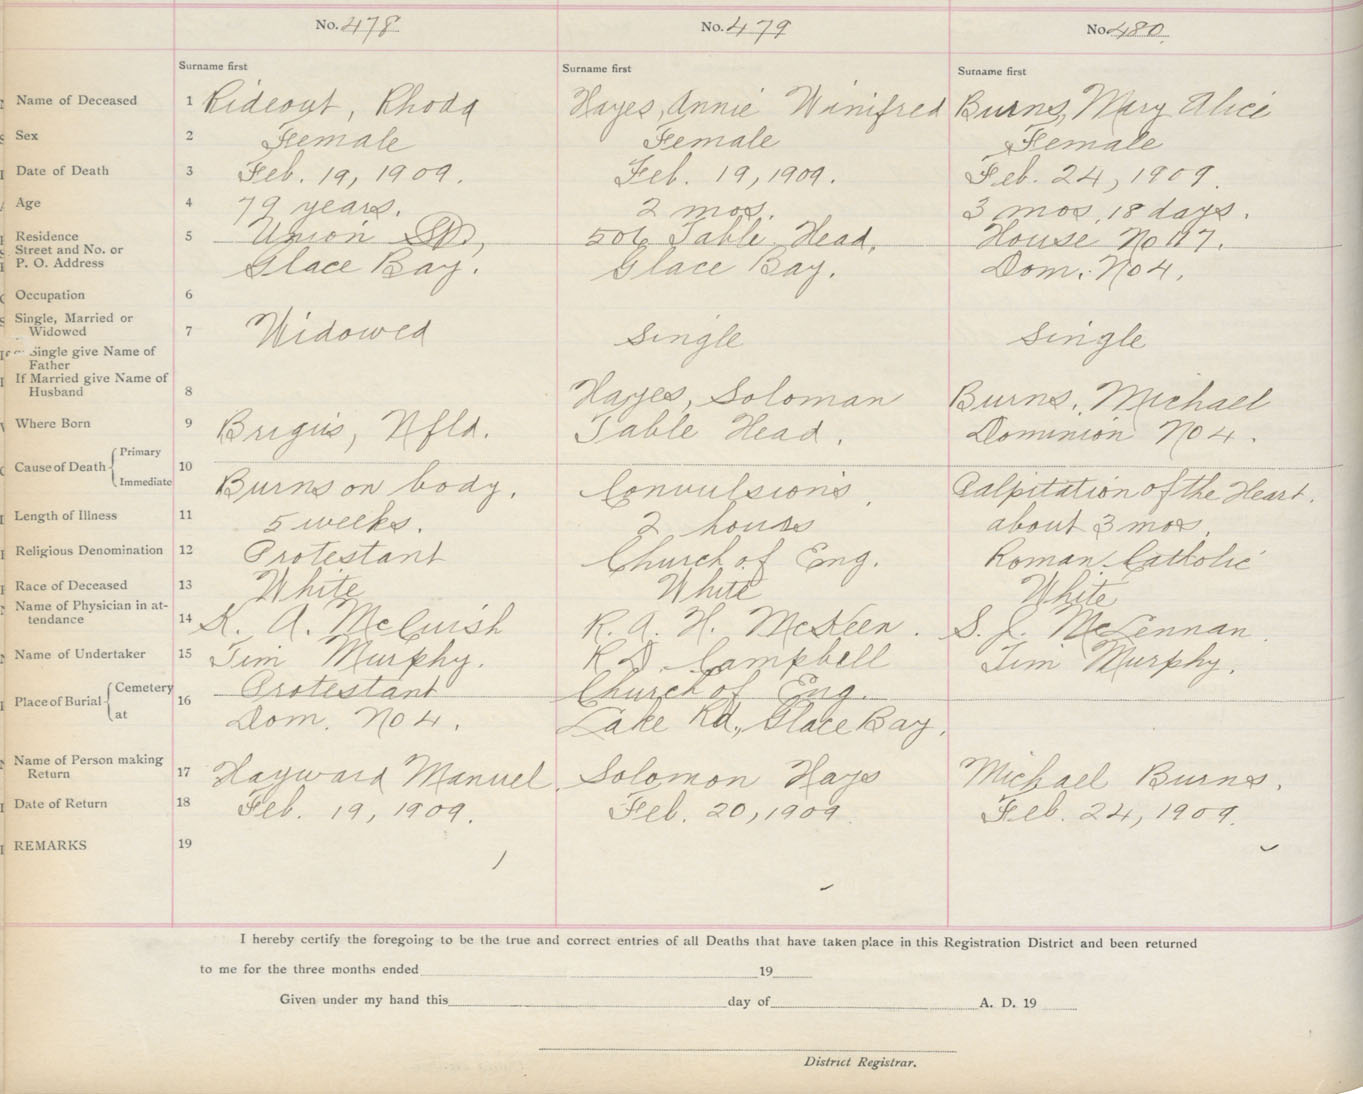 No. 478 No. 479 No. 480
Surname first Surname first Surname first
Name of Deceased 1 Rideout, Rhoda Hayes, Annie Winifred Burns, Mary Alice
Sex 2 Female Female Female
Date of Death 3 Feb. 19, 1909. Feb. 19, 1909. Feb. 24, 1909.
Age 4 79 years. 2 mos. 3 mos, 18 days.
Residence 5 Union St., 506 Table Head, House No 117.
Street and No. or
P. O. Address Glace Bay. Glace Bay. Dom. No 4.
Occupation 6
Single, Married or
Widowed 7 Widowed Single Single
Single give Name of
Father
If Married give Name of
Husband 8 Hayes, Soloman Burns, Michael
Where Born 9 Brigus, Nfld. Table Head. Dominion No 4.
Cause of Death Primary 10
Immediate Burns on body. Convulsions. Palpitation of the Heart.
Length of Illness 11 5 weeks. 2 hours about 3 mos.
Religious Denomination 12 Protestant Church of Eng. Roman Catholic
Race of Deceased 13 White White White
Name of Physician in at-
tendance 14 K. A. McCuish R. A. H. McKeen. S. J. McLennan.
Name of Undertaker 15 Jim Murphy. Campbell Jim Murphy.
Place of Burial Cemetery 16 Protestant Church of Eng.
at Dom. No 4. Lake Rd., Glace Bay.
Name of Person making
Return 17 Hayward Manuel. Solomon Hays Michael Burns.
Date of Return 18 Feb. 19, 1909. Feb. 20, 1909 Feb. 24, 1909.
REMARKS 19
I hereby certify the foregoing to be the true and correct entries of all Deaths that have taken place in this Registration District and been returned
to me for the three months ended 19
Given under my hand this day of A. D. 19
District Registrar.